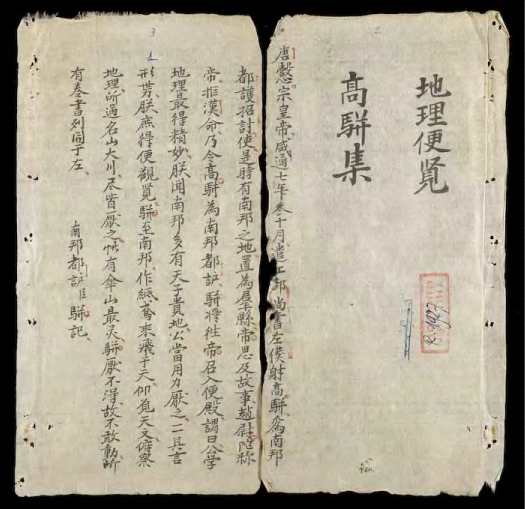 地理便覧
高駢集
唐懿宗皇帝咸通七年叁十月遣工部尚書左僕射高駢為南邦
都護招討使是時有南邦之地置為郡縣帝思及故事趙尉佗称
帝拒漢命乃令高駢為南邦都護駢將徃帝召入便殿謂曰公学
地理最得精妙朕聞南邦多有天子貴地公當用力厭之一一具言
形势朕庶得便觀覧駢至南邦作紙鳶乘飛于天仰覓天文俯察
地理所過名山大川底皆厭之惟有傘山最灵駢厭不得故不敢動所
有奏書列同于左
南邦都護臣駢記